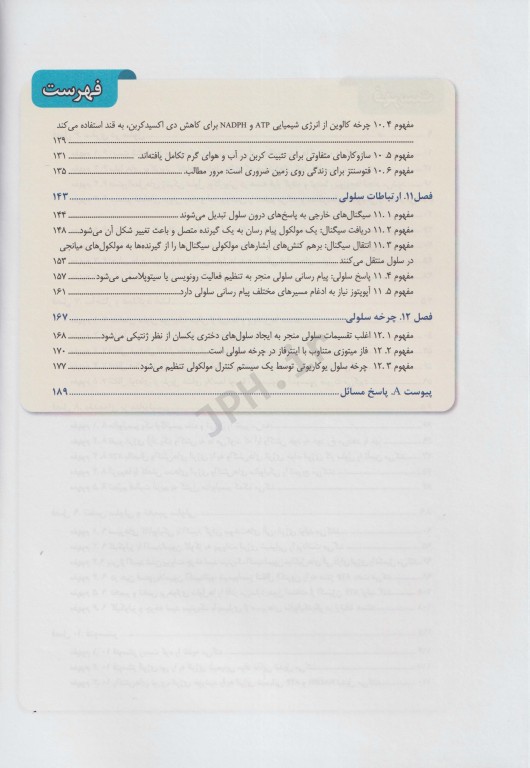 فهرست
مفهوم ۱۰.۴ چرخه کالوین از انرژی شیمیایی ATP و NADPH برای کاهش دی اکسیدکربن، به قند استفاده می‌کند
۱۲۹
مفهوم ۱۰.۵ سازوکارهای متفاوتی برای تثبیت کربن در آب و هوای گرم تکامل یافته‌اند. ۱۳۱
مفهوم ۱۰.۶ فتوسنتز برای زندگی روی زمین ضروری است: مرور مطالب. ۱۳۵
فصل۱۱. ارتباطات سلولی ۱۴۳
مفهوم ۱۱.۱ سیگنال‌های خارجی به پاسخ‌های درون سلول تبدیل می‌شوند ۱۴۴
مفهوم ۱۱.۲ دریافت سیگنال: یک مولکول پیام رسان به یک گیرنده متصل و باعث تغییر شکل آن می‌شود. ۱۴۸
مفهوم ۱۱.۳ انتقال سیگنال: برهم کنش‌های آبشارهای مولکولی سیگنال‌ها را از گیرنده‌ها به مولکول‌های میانجی
در سلول منتقل می‌کنند ۱۵۳
مفهوم ۱۱.۴ پاسخ سلولی: پیام رسانی سلولی منجر به تنظیم فعالیت رونویسی یا سیتوپلاسمی می‌شود ۱۵۷
مفهوم ۱۱.۵ آپوپتوز نیاز به ادغام مسیرهای مختلف پیام رسانی سلولی دارد. ۱۶۱
فصل ۱۲. چرخه سلولی ۱۶۷
مفهوم ۱۲.۱ اغلب تقسیمات سلولی منجر به ایجاد سلول‌های دختری یکسان از نظر ژنتیکی می‌شود ۱۶۸
مفهوم ۱۲.۲ فاز میتوزی متناوب با اینترفاز در چرخه سلولی است ۱۷۰
مفهوم ۱۲.۳ چرخه سلول یوکاریوتی توسط یک سیستم کنترل مولکولی تنظیم می‌شود ۱۷۷
پیوست A. پاسخ مسائل ۱۸۹
JPH.IR